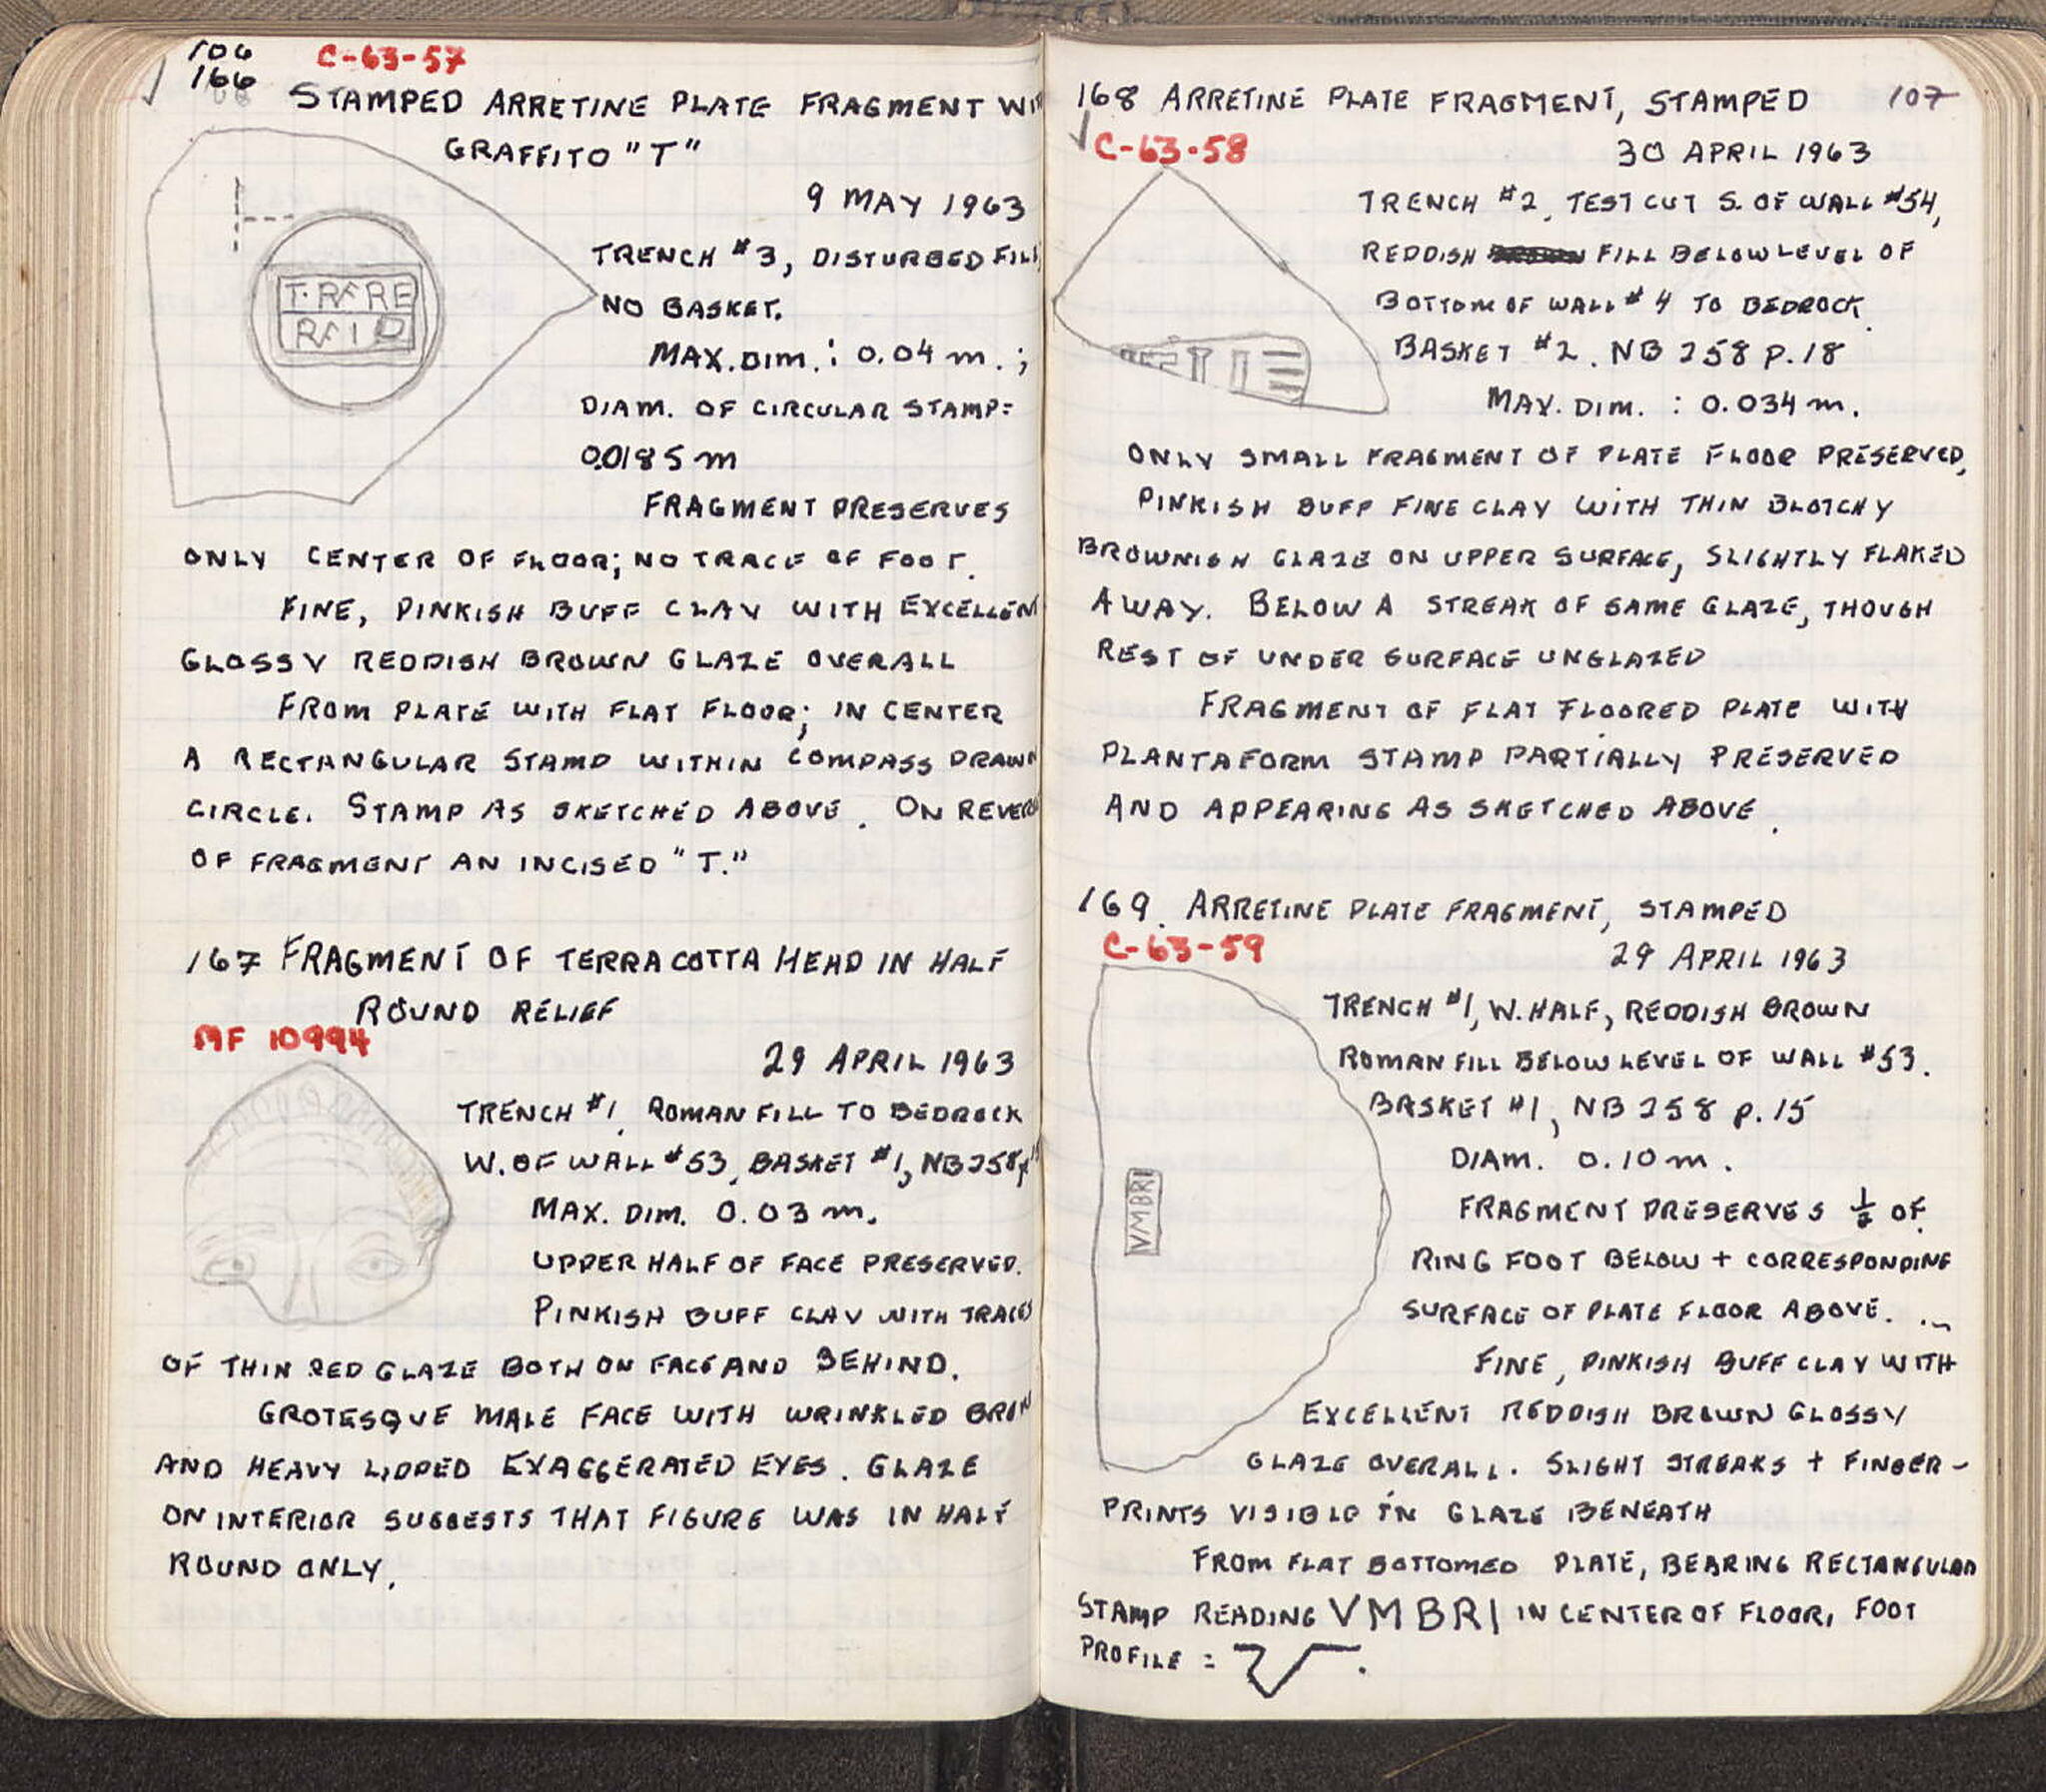 106
166 C-63-57
STAMPED ARRETINE PLATE FRAGMENT WI
GRAFFITO "T"
9 MAY 1963
TRENCH #3, DISTURBED FILL,
NO BASKET.
MAX. DIM. : 0.04 m. ;
DIAM. OF CIRCULAR STAMP:
0.0185 m
FRAGMENT PRESERVES
ONLY CENTER OF FLOOR; NO TRACE OF FOOT.
FINE, PINKISH BUFF CLAY WITH EXCELLENT
GLOSSY REDDISH BROWN GLAZE OVERALL
FROM PLATE WITH FLAT FLOOR; IN CENTER
A RECTANGULAR STAMP WITHIN COMPASS DRAWN
CIRCLE. STAMP AS SKETCHED ABOVE. ON REVERSE
OF FRAGMENT AN INCISED "T."
167 FRAGMENT OF TERRACOTTA HEAD IN HALF
ROUND RELIEF
MF 10994
29 APRIL 1963
TRENCH #1, ROMAN FILL TO BEDROCK
W. OF WALL #53, BASKET #1, NB 258 p
MAX. DIM. 0.03 m.
UPPER HALF OF FACE PRESERVED.
PINKISH BUFF CLAY WITH TRACES
OF THIN RED GLAZE BOTH ON FACE AND BEHIND.
GROTESQUE MALE FACE WITH WRINKLED BROW
AND HEAVY LIDDED EXAGGERATED EYES. GLAZE
ON INTERIOR SUGGESTS THAT FIGURE WAS IN HALF
ROUND ONLY.
168 ARRETINE PLATE FRAGMENT, STAMPED 107
C-63-58
30 APRIL 1963
TRENCH #2, TEST CUT S. OF WALL #54,
REDDISH FILL BELOW LEVEL OF
BOTTOM OF WALL #4 TO BEDROCK.
BASKET #2. NB 258 p. 18
MAX. DIM. : 0.034 m.
ONLY SMALL FRAGMENT OF PLATE FLOOR PRESERVED,
PINKISH BUFF FINE CLAY WITH THIN BLOTCHY
BROWNISH GLAZE ON UPPER SURFACE, SLIGHTLY FLAKED
AWAY. BELOW A STREAK OF SAME GLAZE, THOUGH
REST OF UNDER SURFACE UNGLAZED
FRAGMENT OF FLAT FLOORED PLATE WITH
PLANTAFORM STAMP PARTIALLY PRESERVED
AND APPEARING AS SKETCHED ABOVE.
169. ARRETINE PLATE FRAGMENT, STAMPED
C-63-59
29 APRIL 1963
TRENCH #1, W. HALF, REDDISH BROWN
ROMAN FILL BELOW LEVEL OF WALL #53.
BASKET #1, NB 258 p. 15
DIAM. 0.10 m.
VMBRI
FRAGMENT PRESERVES ½ OF
RING FOOT BELOW + CORRESPONDING
SURFACE OF PLATE FLOOR ABOVE.
FINE, PINKISH BUFF CLAY WITH
EXCELLENT REDDISH BROWN GLOSSY
GLAZE OVERALL. SLIGHT STREAKS + FINGER-
PRINTS VISIBLE IN GLAZE BENEATH
FROM FLAT BOTTOMED PLATE, BEARING RECTANGULAR
STAMP READING VMBRI IN CENTER OF FLOOR, FOOT
PROFILE =